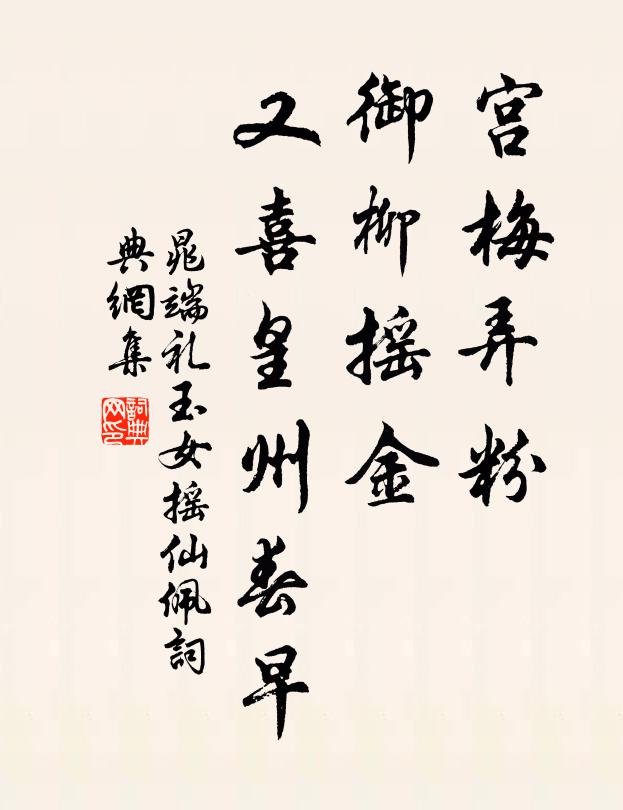 宫梅弄粉
御柳摇金
又喜皇州春早
晁端礼玉女摇仙佩詞
典網集
詞典網印